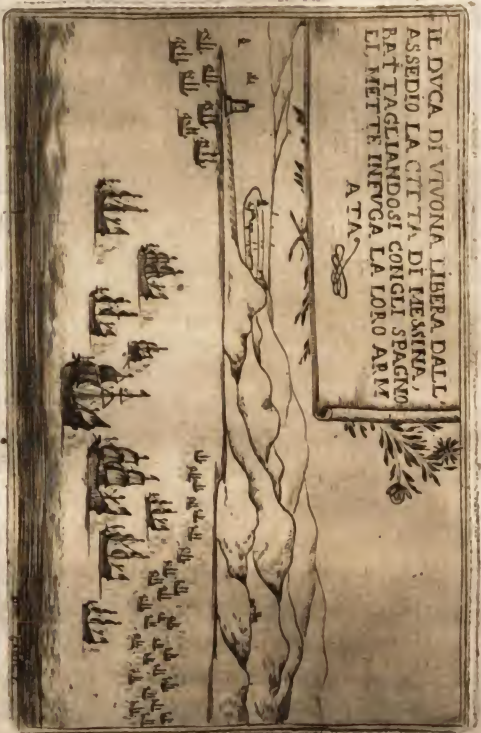 IL DVCA DI VIVONA LIBERA DALL
ASSEDIO LA CITTA DI MESSINA,
BATTAGLIANDOSI CON GLI SPAGNO
LI METTE IN FVGA LA LORO ARM
ATA